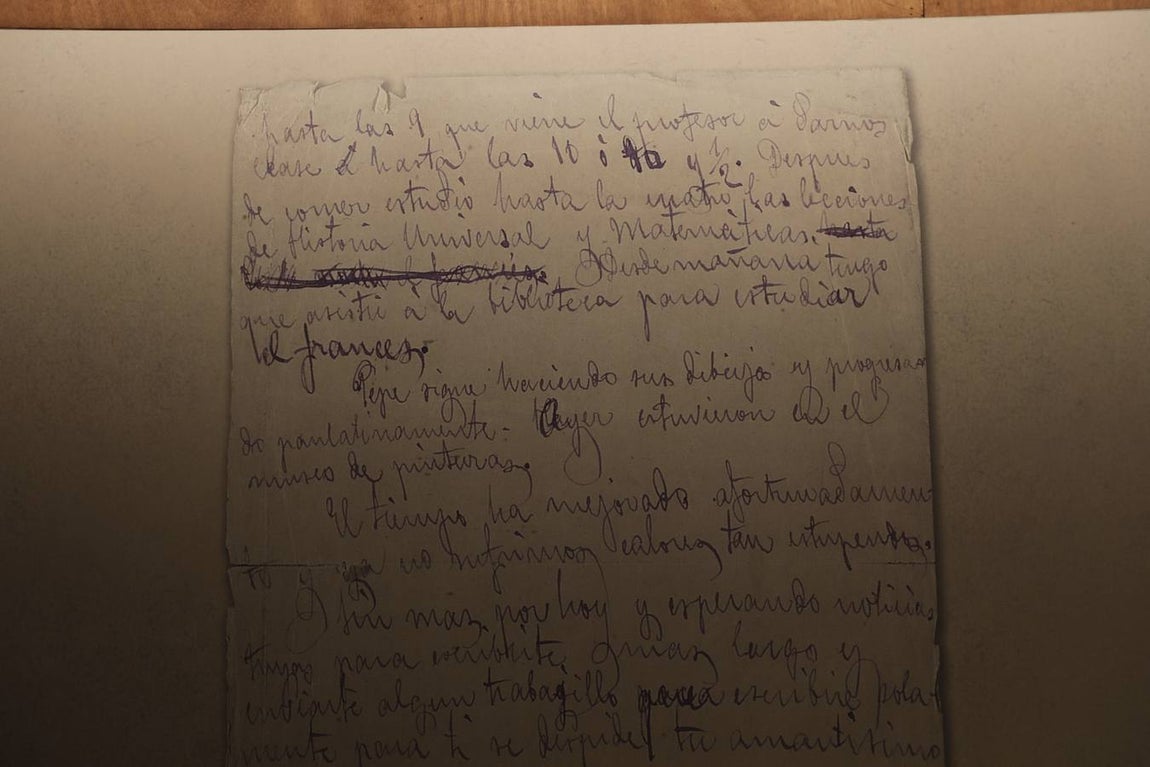 hasta las 9 que viene el profesor à darnos
clase hasta las 10 ó 10 y 1/2. Despues
de comer estudio hasta la cuatro las lecciones
de Historia Universal y Matemàticas. hasta
el francés. Desde mañana tengo
que asistir à la biblioteca para estudiar
el frances.
Pepe sigue haciendo sus dibujos y progresan
do paulatinamente. Ayer estuvieron en el
museo de pinturas.
El tiempo ha mejorado afortunadamen
te y ya no sufrimos calores tan estupendos.
Sin mas por hoy y esperando noticias
tuyas para escribirte mas largo y
enviarte algun trabajillo para escribir sola
mente para ti se despide tu amantisimo